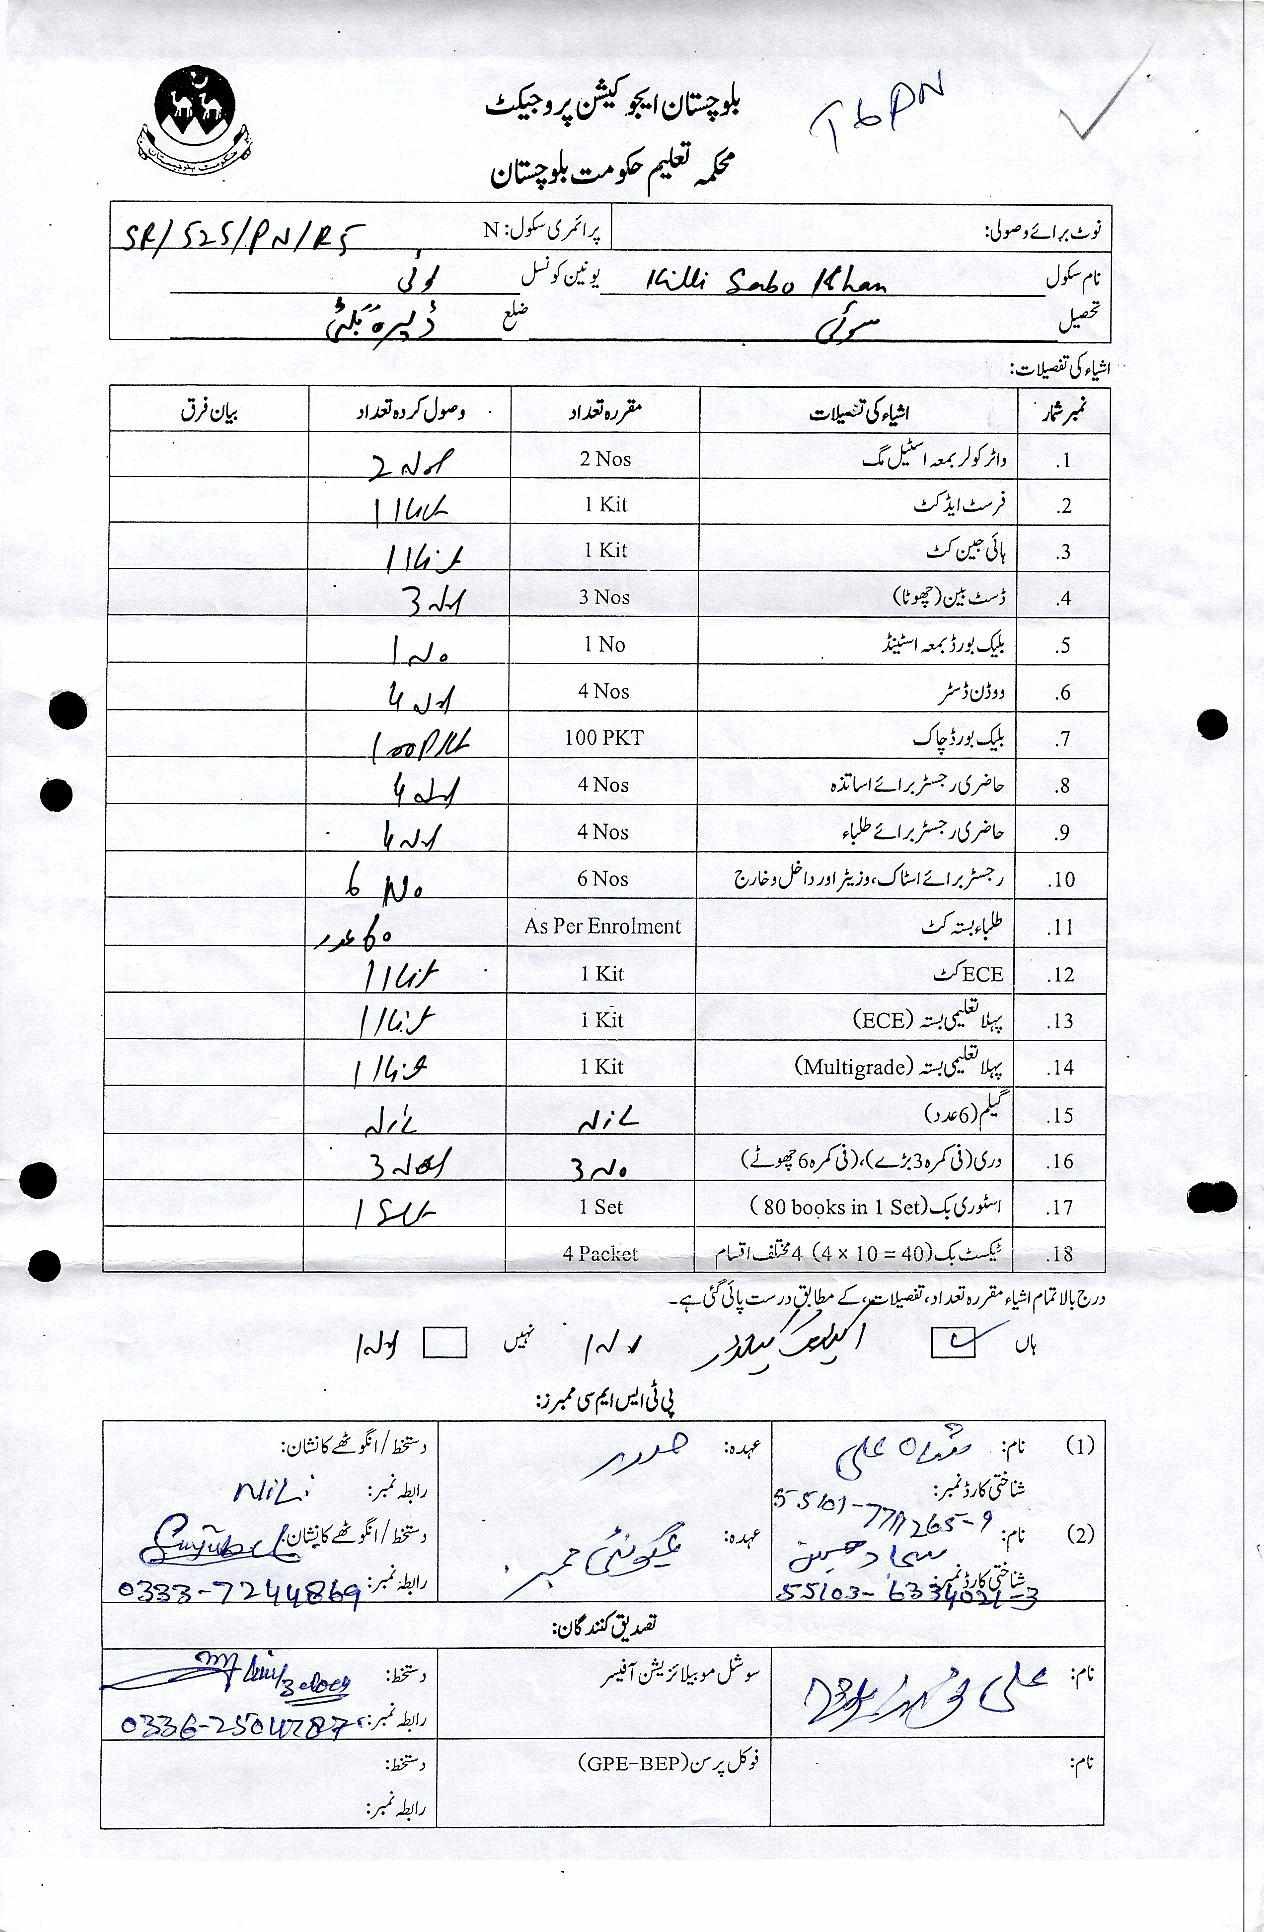 بلوچستان ایجوکیشن پروجیکٹ
T6PN
محکمہ تعلیم حکومت بلوچستان
حکومت بلوچستان
نوٹ برائے وصولی: پرائمری سکول: N SR/525/PN/R5
نام سکول Killi Sabo Khan یونین کونسل
تحصیل سوئی ضلع ڈیرہ بگٹی
اشیاء کی تفصیلات:
نمبر شمار اشیاء کی تفصیلات مقررہ تعداد وصول کردہ تعداد بیان فرق
1. واٹر کولر بمعہ اسٹیل مگ 2 Nos 2 Nos
2. فرسٹ ایڈ کٹ 1 Kit 1 Kit
3. ہائی جین کٹ 1 Kit 1 Kit
4. ڈسٹ بین (چھوٹا) 3 Nos 3 Nos
5. بلیک بورڈ بمعہ اسٹینڈ 1 No 1 No
6. ووڈن ڈسٹر 4 Nos 4 Nos
7. بلیک بورڈ چاک 100 PKT 100 PKT
8. حاضری رجسٹر برائے اساتذہ 4 Nos 4 Nos
9. حاضری رجسٹر برائے طلباء 4 Nos 4 Nos
10. رجسٹر برائے اسٹاک، وزیٹر اور داخل و خارج 6 Nos 6 No
11. طلباء بستہ کٹ As Per Enrolment 60 عدد
12. ECE کٹ 1 Kit 1 Kit
13. پہلا تعلیمی بستہ (ECE) 1 Kit 1 Kit
14. پہلا تعلیمی بستہ (Multigrade) 1 Kit 1 Kit
15. گیلم (6 عدد) NiL NiL
16. دری (فی کمرہ 3 بڑے)، (فی کمرہ 6 چھوٹے) 3 No 3 Nos
17. اسٹوری بک (80 books in 1 Set) 1 Set 1 Set
18. ٹیکسٹ بک (4 x 10 = 40) 4 مختلف اقسام 4 Packet
درج بالا تمام اشیاء مقررہ تعداد، تفصیلات، کے مطابق درست پائی گئی ہے۔
ہاں نہیں
پی ٹی ایس ایم سی ممبرز:
(1) نام: علی عہدہ: صدر دستخط/انگوٹھے کا نشان:
شناختی کارڈ نمبر: رابطہ نمبر: NiL
(2) نام: سجاد حسین عہدہ: کمیونٹی ممبر دستخط/انگوٹھے کا نشان:
شناختی کارڈ نمبر: 55103-6334021-3 رابطہ نمبر: 0333-7244869
تصدیق کنندگان:
نام: علی سوشل موبیلائزیشن آفیسر دستخط:
رابطہ نمبر: 0336-2504787
نام: فوکل پرسن (GPE-BEP) دستخط:
رابطہ نمبر: